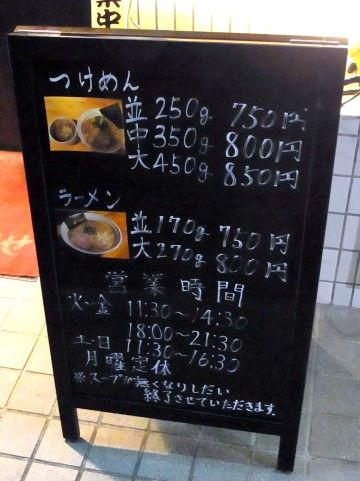 業中
つけめん
並250g 750円
中350g 800円
大450g 850円
ラーメン
並170g 750円
大270g 800円
営業時間
火~金 11:30~14:30
18:00~21:30
土・日 11:30~16:30
月曜定休
※スープが無くなりしだい
終了させていただきます。